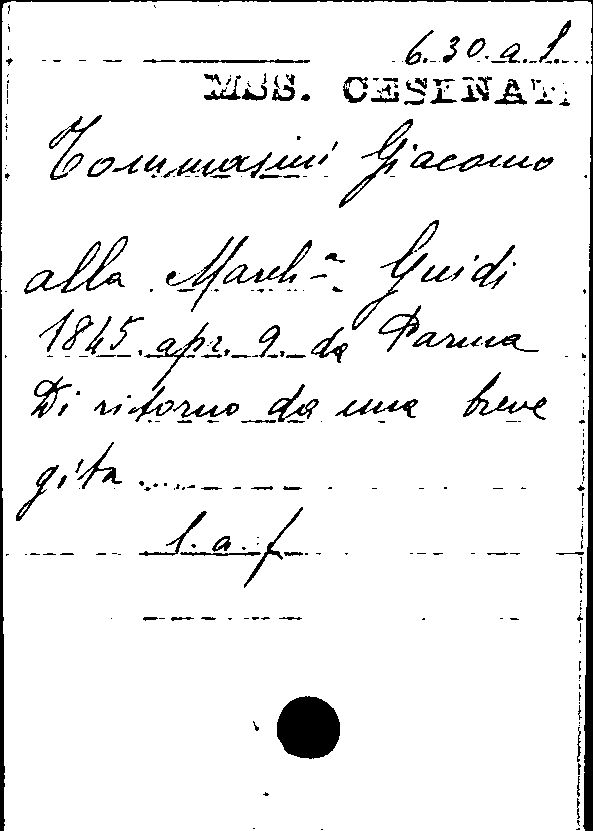 6.30.a.1.
MSS. CESENATI
Tommasini Giacomo
alla March.ª Guidi
1845. apr. 9. da Parma
Di ritorno da una breve
gita....
l. a. f